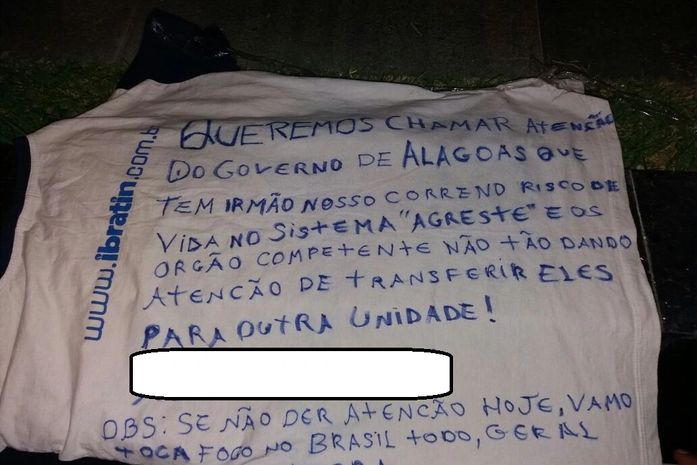 www.ibratin.com.b
QUEREMOS CHAMAR AtENÇÃO
DO GOVERNO DE ALAGOAS QUE
TEM IRMÃO NOSSO CORREND RISCO DE
VIDA NO SISTEMA "AGRESTE" E OS
ORGÃO COMPETENTE NÃO TÃO DANDO
ATENÇÃO DE TRANSFERIR ELES
PARA OUTRA UNIDADE!
OBS: SE NÃO DER ATENCÃO HOJE, VAMO
TOCA FOGO NO BRASIL TODO, GERAL